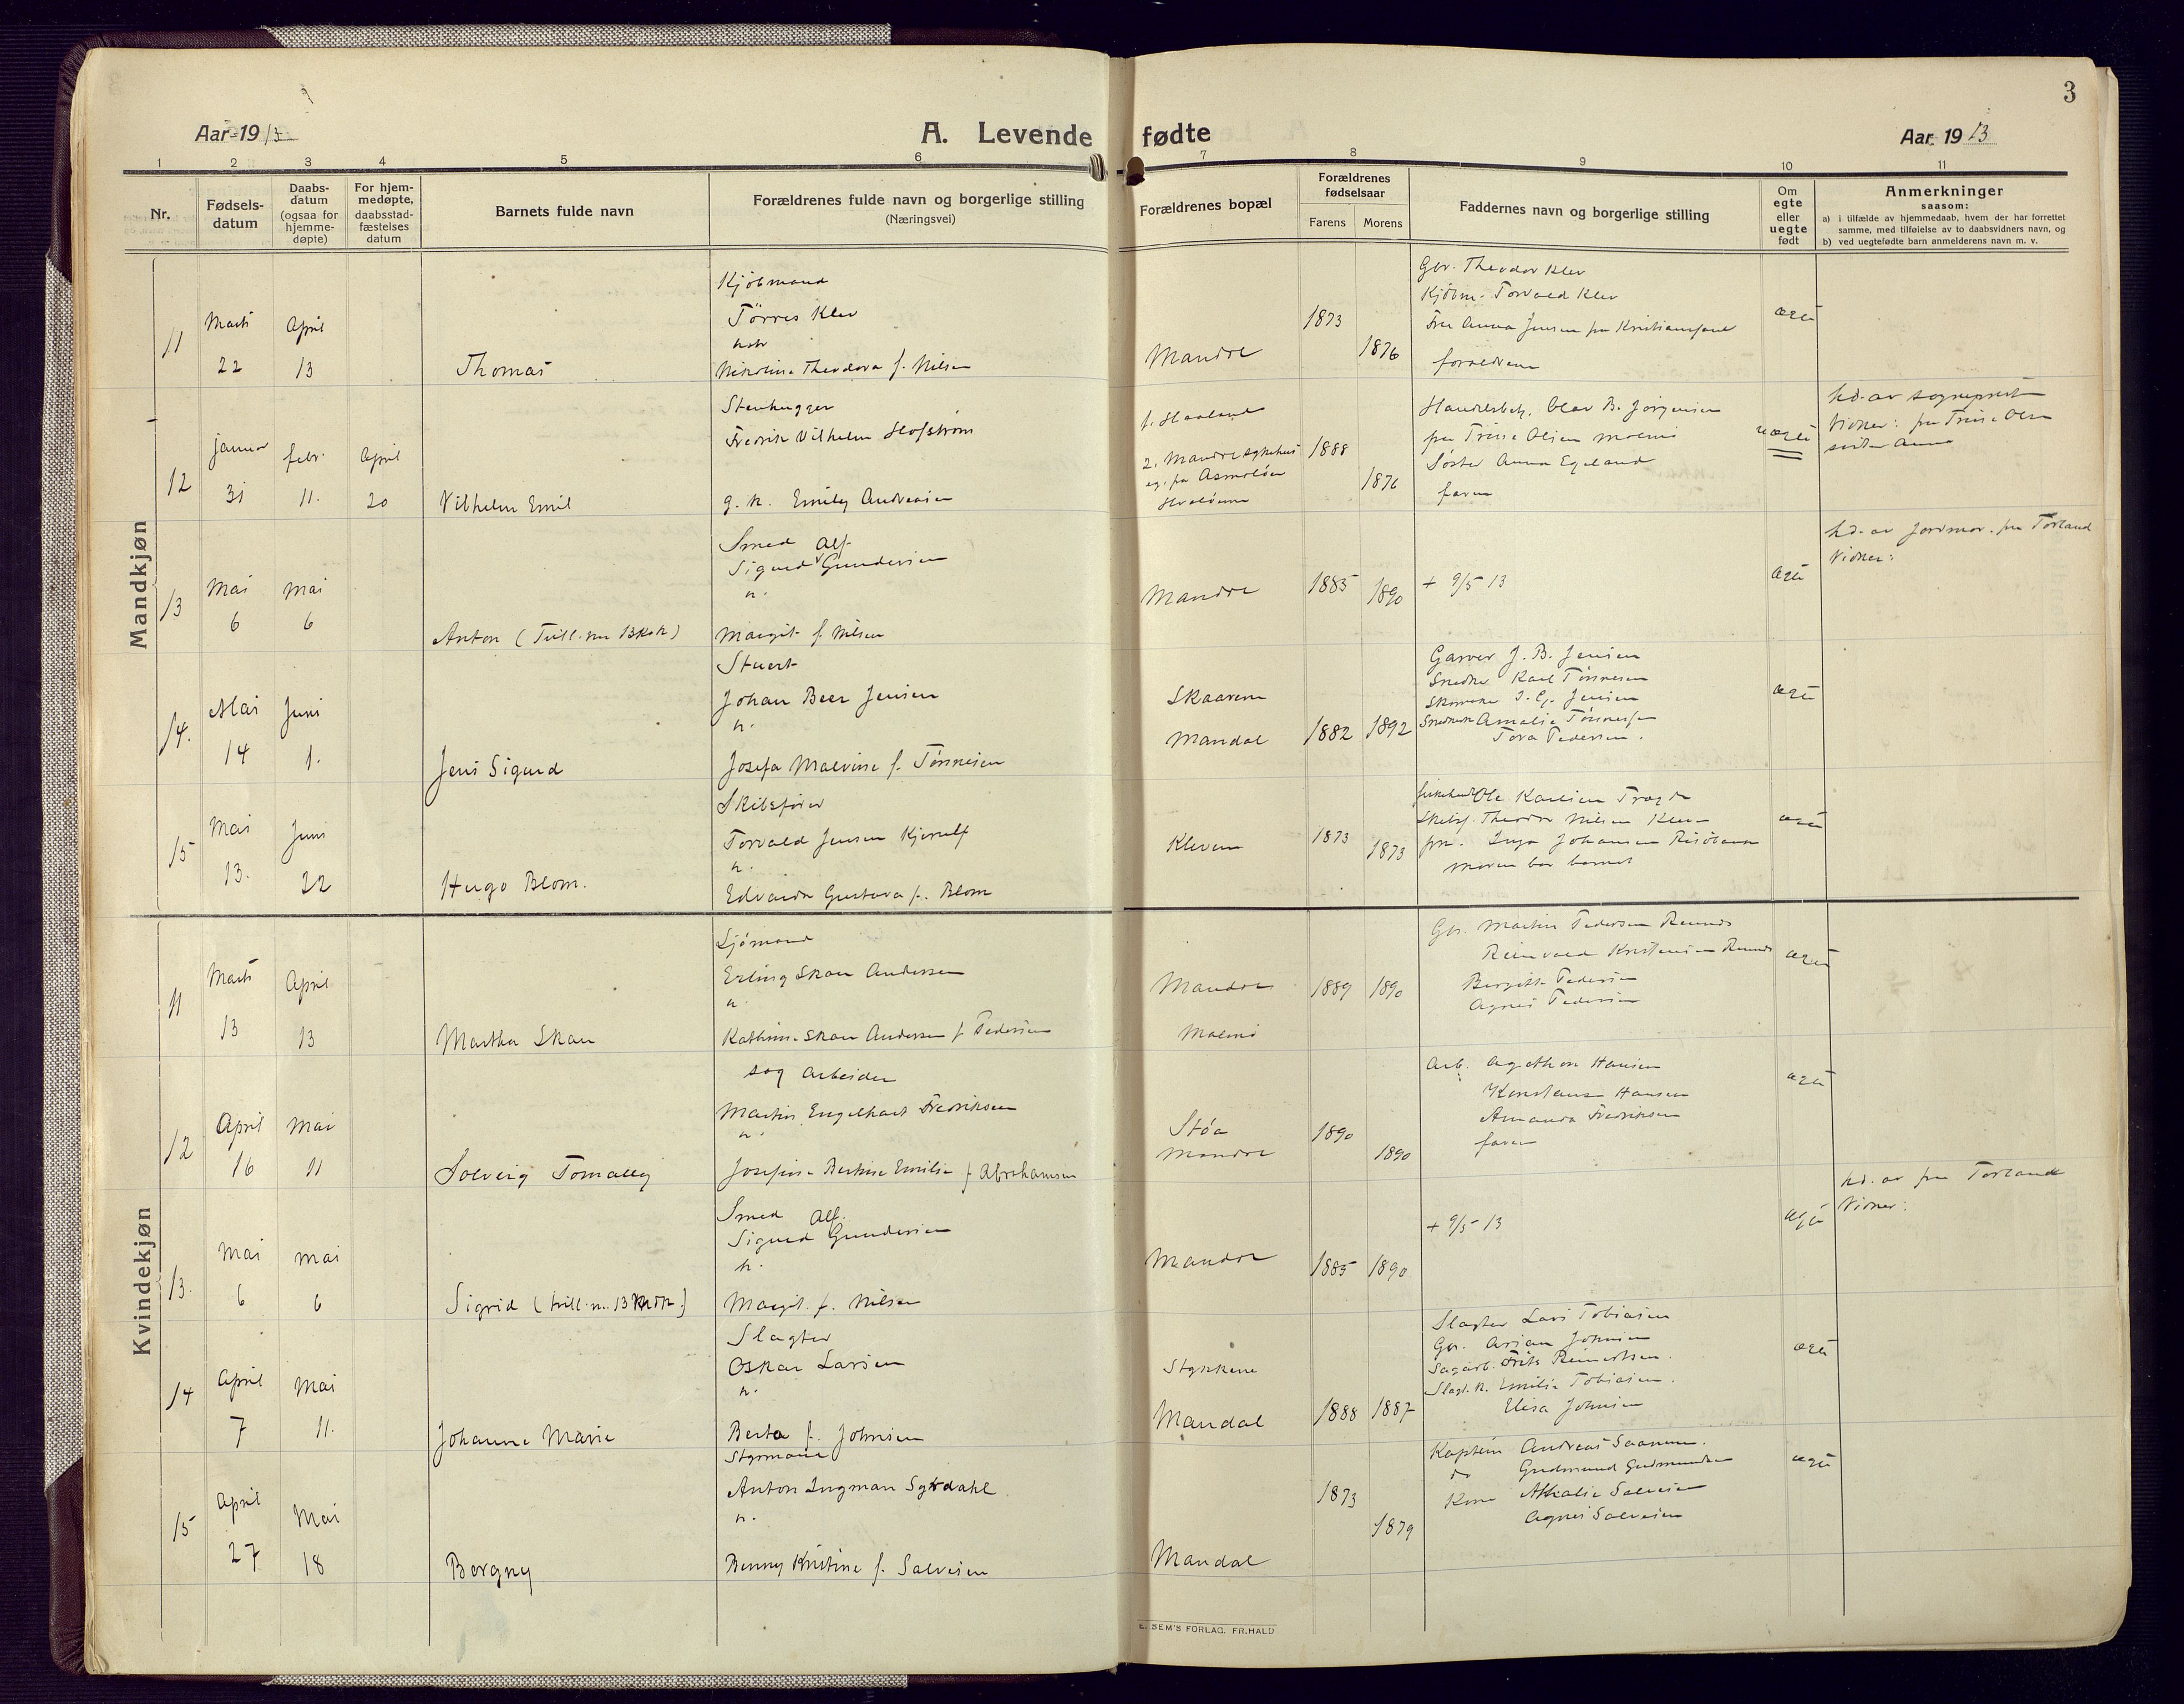 3
Aar 1913
A. Levende fødte
Aar 1913
1 2 3 4 5 6 7 8 9 10 11
Nr.
Fødsels-
datum
Daabs-
datum
(ogsaa for
hjemme-
døpte)
For hjem-
medøpte,
daabsstad-
fæstelses
datum
Barnets fulde navn
Forældrenes fulde navn og borgerlige stilling
(Næringsvei)
Forældrenes bopæl
Forældrenes
fødselsaar
Farens
Morens
Faddernes navn og borgerlige stilling
Om
egte
eller
uegte
født
Anmerkninger
saasom:
a) i tilfælde av hjemmedaab, hvem der har forrettet
samme, med tilføielse av to daabsvidners navn, og
b) ved uegtefødte barn anmelderens navn m. v.
Mandkjøn
11
Marts
22
April
13
Thomas
Kjøbmand
Tørres Klev
Theodora f. Nilsen
1873
1876
Gbr. Theodor Klev
Kjøbm. Torvald Klev
Anna Jensen fra Kristiansand
forældrene
12
januar
31
febr.
11.
April
20
Vilhelm Emil
Stenhugger
Fredrik Vilhelm Hofstrøm
g. k. Emily Andreasen
1888
1876
Olav B. Jørgensen
Olsen Malmø
Søster Anna Egeland
faren
hd. av sogneprest
Vidner:
søster Anna
13
Mai
6
Mai
6
Anton (Tvill. m. 13 kvk)
Smed Alf
Sigurd Gundersen
h.
Margit f. Nilsen
1885
1890
+ 9/5 13
hd. av jordmor fru Torland
Vidner:
14.
Mai
14
Juni
1.
Jens Sigurd
Stuert
Johan Beer Jensen
h.
Josefa Malvine f. Tønnesen
Skaarene
Mandal
1882
1892
Garver J. B. Jensen
Snedker Karl Tønnesen
Jensen
Amalie Tønnesen
Tora Pedersen.
15
Mai
13.
Juni
22
Hugo Blom.
Skibsfører
Torvald Jensen Kjerulf
h.
Edvarda Gustava f. Blom
Kleven
1873
1873
Ole Karlsen
Skibsf. Theodor Nilsen Kleven
Inga Johansen
moren bar barnet
Kvindekjøn
11
Marts
13
April
13
Martha Skau
Sjømand
Erling Skau Andersen
h.
Kathrine Skau Andersen f Pedersen
Malmø
1889
1890
Gbr. Martin Pedersen
Kristensen
Pedersen
Agnes Pedersen
12
April
16
Mai
11
Solveig Tomally
sag arbeider
Martin Engelhart Fredriksen
h.
Josefine Bertine Emilie f Abrahamsen
Støa
1890
1890
Arb. Agathon Hansen
Konstanse Hansen
Amanda Fredriksen
faren
13.
Mai
6
Mai
6
Sigrid (tvill. m. 13 mdk.)
Smed Alf.
Sigurd Gundersen
h.
Margit f. Nilsen
1885
1890
+ 9/5 13
hd. av fru Torland
Vidner:
14
April
7
Mai
11.
Johanne Marie
Slagter
Oskar Larsen
h.
Berta f. Johnsen
Mandal
1888
1887
Slagter Lars Tobiasen
Gbr. Johnsen
Sagarb. Frits Reinertsen.
Slagt. k. Emilie Tobiasen.
Elisa Johnsen
15
April
27
Mai
18
Borgny
Styrmand
Anton Ingman Syrdahl
h.
Benny Kristine f. Salvesen
Mandal
1873
1879
Kaptein Andreas Saanum.
do Gudmund Gudmundsen
Kone Athalie Salvesen
Agnes Salvesen
E. SEM'S FORLAG. FR.HALD